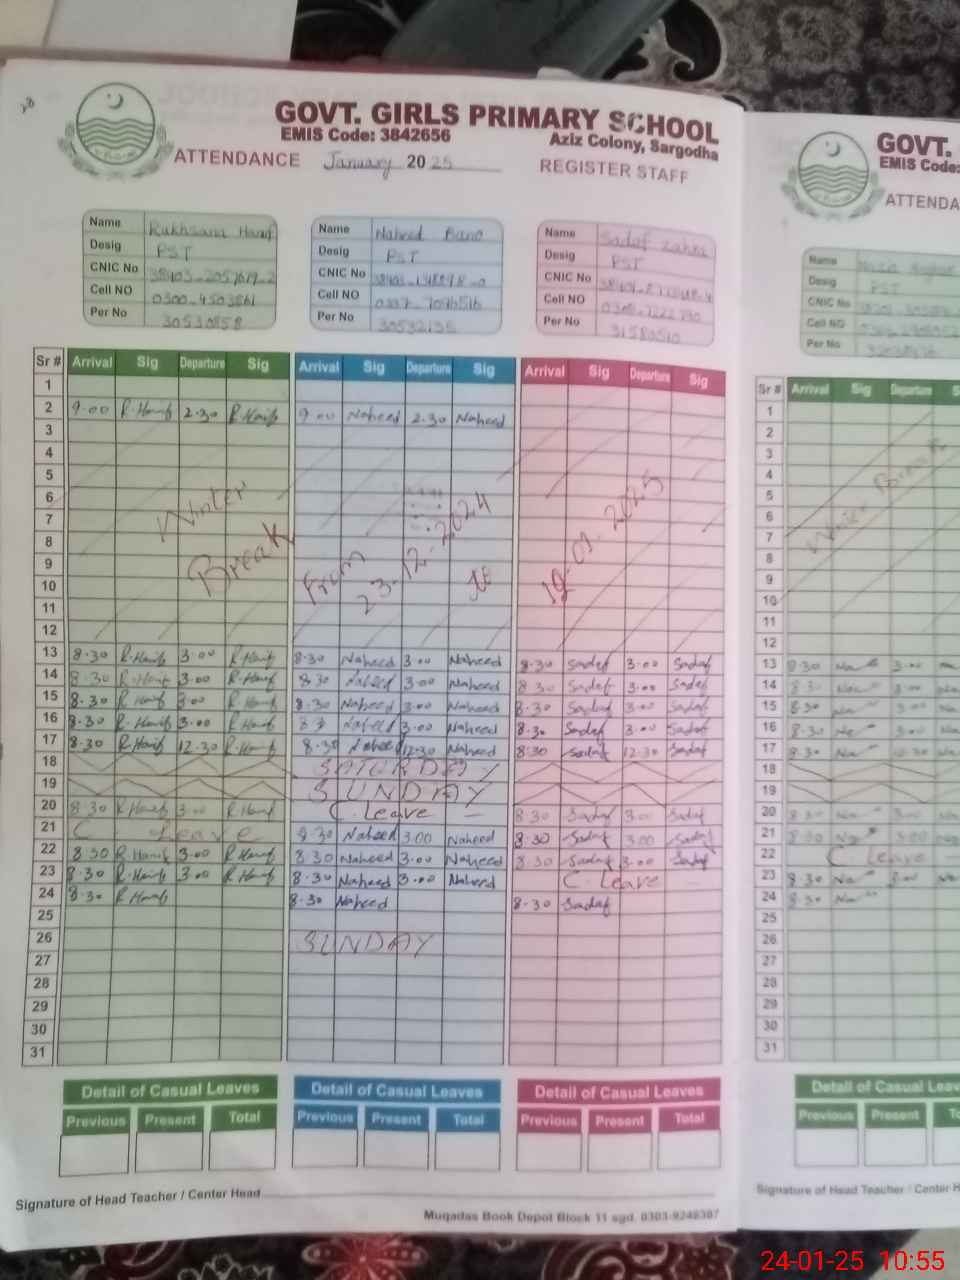 GOVT. GIRLS PRIMARY SCHOOL
EMIS Code: 3842656 Aziz Colony, Sargodha
ATTENDANCE January 2025 REGISTER STAFF
Name Rukhsana Hanif
Desig PST
CNIC No
Cell NO
Per No 30530858
Name Naheed Bano
Desig PST
CNIC No
Cell NO
Per No
Name Sadaf Zahra
Desig PST
CNIC No
Cell NO
Per No
Sr # Arrival Sig Departure Sig Arrival Sig Departure Sig Arrival Sig Departure Sig
1
2 9-00 R.Hanif 2.30 R.Hanif 9-00 Naheed 2.30 Naheed
3
4
5
6
7
8
9
10
11
12
Winter Break From 23-12-2024 to
13 8.30 R.Hanif 3.00 R.Hanif 8.30 Naheed 3.00 Naheed 8.30 Sadaf 3.00 Sadaf
14 8.30 R.Hanif 3.00 R.Hanif 8.30 Naheed 3.00 Naheed 8.30 Sadaf 3.00 Sadaf
15 8.30 R.Hanif 3.00 R.Hanif 8.30 Naheed 3.00 Naheed 8.30 Sadaf 3.00 Sadaf
16 8.30 R.Hanif 3.00 R.Hanif Naheed 3.00 Naheed 8.30 Sadaf 3.00 Sadaf
17 8.30 R.Hanif 12.30 R.Hanif 8.30 Naheed 12.30 Naheed 8:30 Sadaf 12.30 Sadaf
18 SATURDAY
19 SUNDAY
20 8.30 R.Hanif 3.00 R.Hanif C.Leave 8.30 Sadaf 3.00 Sadaf
21 C. Leave 8.30 Naheed 3.00 Naheed 8.30 Sadaf 3.00 Sadaf
22 8.30 R.Hanif 3.00 R.Hanif 8.30 Naheed 3.00 Naheed 8.30 Sadaf 3.00 Sadaf
23 8.30 R.Hanif 3.00 R.Hanif 8.30 Naheed 3.00 Naheed C. Leave
24 8.30 R.Hanif 8.30 Naheed 8.30 Sadaf
25
26 SUNDAY
27
28
29
30
31
Detail of Casual Leaves Detail of Casual Leaves Detail of Casual Leaves
Previous Present Total Previous Present Total Previous Present Total
Signature of Head Teacher / Center Head
Muqadas Book Depot Block 11 sgd. 0303-9248387
GOVT.
EMIS Code:
ATTENDA
Name
Desig PST
CNIC No
Cell NO
Per No
Sr # Arrival Sig Departure S
1
2
3
4
5
6
7
8
9
10
11
12
Winter Break
13 8.30 3.00
14 8.30
15 8.30 3.00
16 8.30 3.00
17 8.30 12.30
18
19
20 8.30 3.00
21 8.30 3.00
22 C Leave
23 8.30 3.00
24 8.30
25
26
27
28
29
30
31
Detail of Casual Leav
Previous Present To
Signature of Head Teacher / Center H
24-01-25 10:55